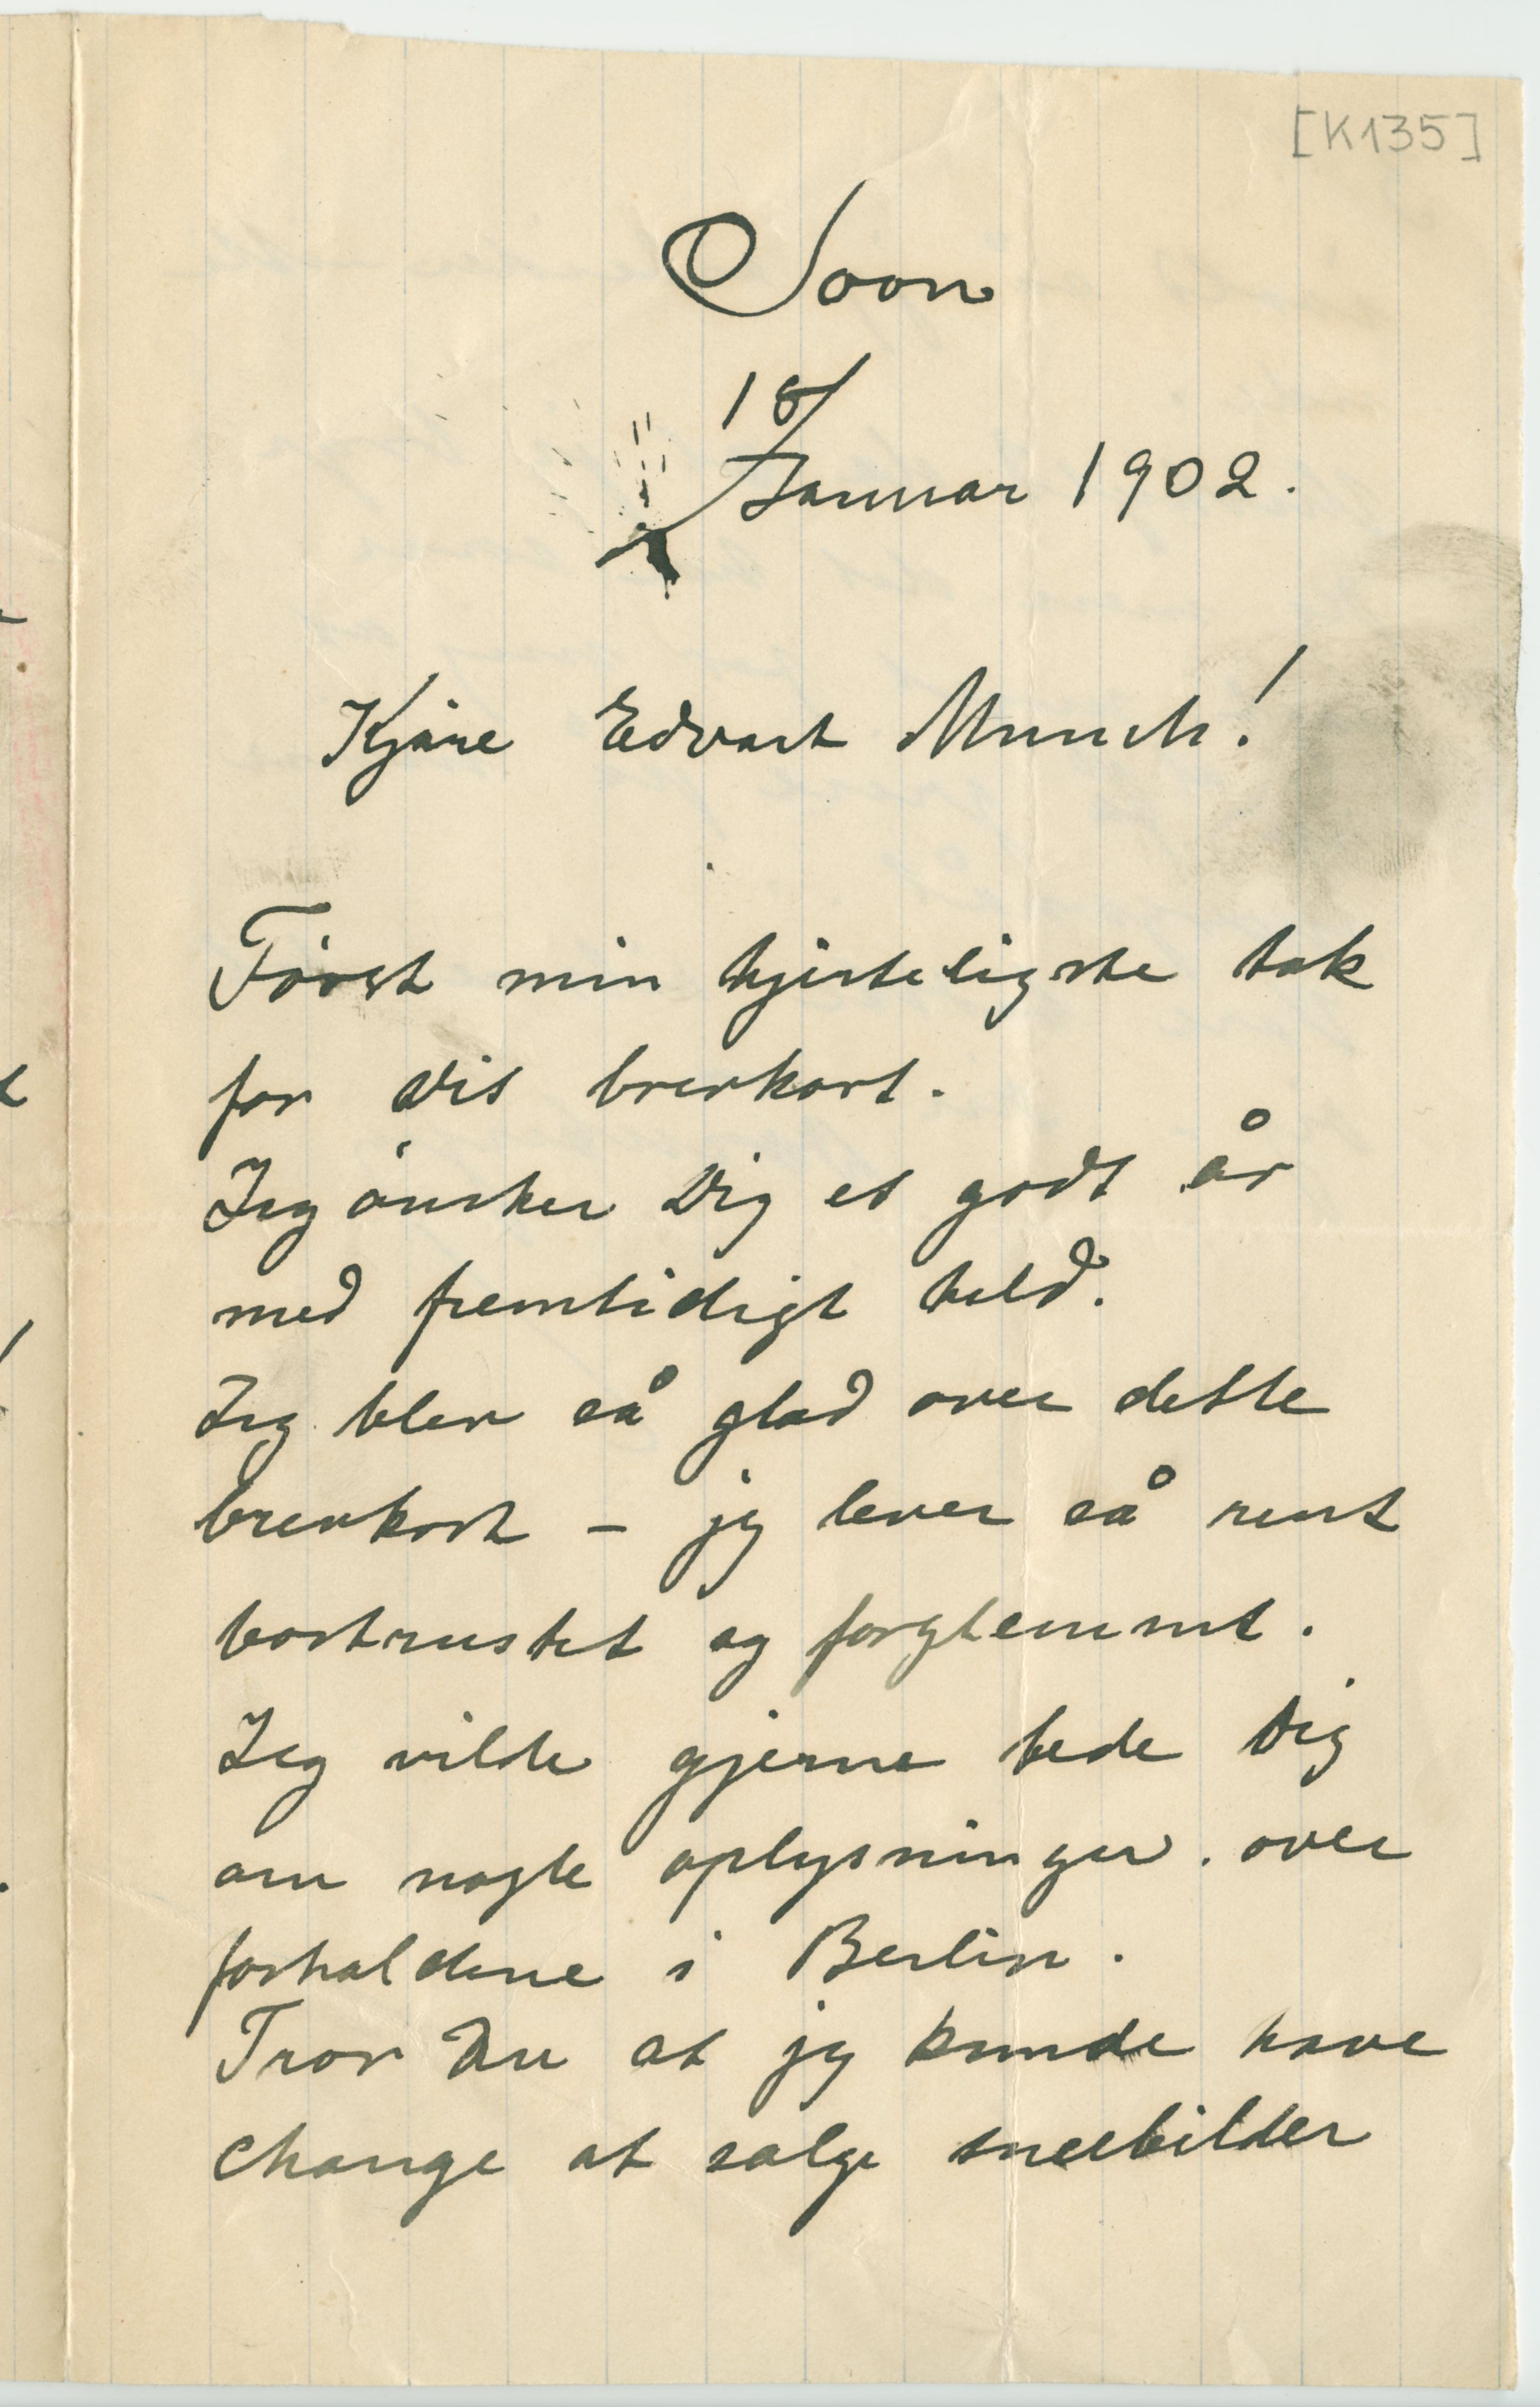 [K135]
Soon
18/
Januar 1902.
Kjäre Edvart Munch!
Först min hjerteligste tak
for dit brevkort.
Jeg önsker Dig et godt år
med fremtidigt held.
Jeg blev så glad over dette
brevkort – jeg lever så rent
bortrustet og forglemmt.
Jeg vilde gjerne bede Dig
om nogle oplysninger. over
forholdene i Berlin.
Tror Du at jeg kunde have
Change at sälge sneebilder